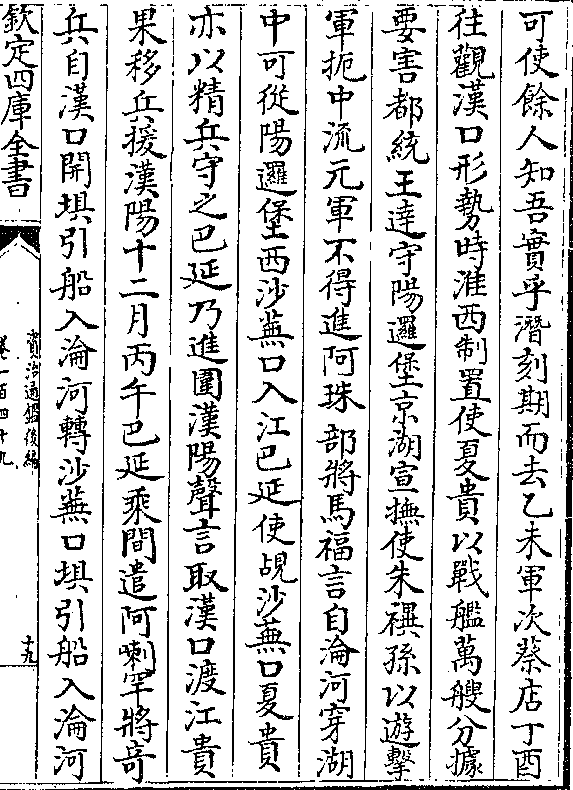 可使餘人知吾實乎潛刻期而去乙未軍次蔡店丁酉
往觀漢口形勢時淮西制置使夏貴以戰艦萬艘分據
要害都統王達守陽邏堡京湖宣撫使朱禩孫以遊擊
軍扼中流元軍不得進阿珠部將馬福言自淪河穿湖
中可從陽邏堡西沙蕪口入江巴延使覘沙蕪口夏貴
亦以精兵守之巴延乃進圍漢陽聲言取漢口渡江貴
果移兵援漢陽十二月丙午巴延乘間遣阿喇罕將奇
兵自漢口開垻引船入淪河轉沙蕪口垻引船入淪河
欽定四庫全書
資治通鑑後編
卷一百四十九
十九